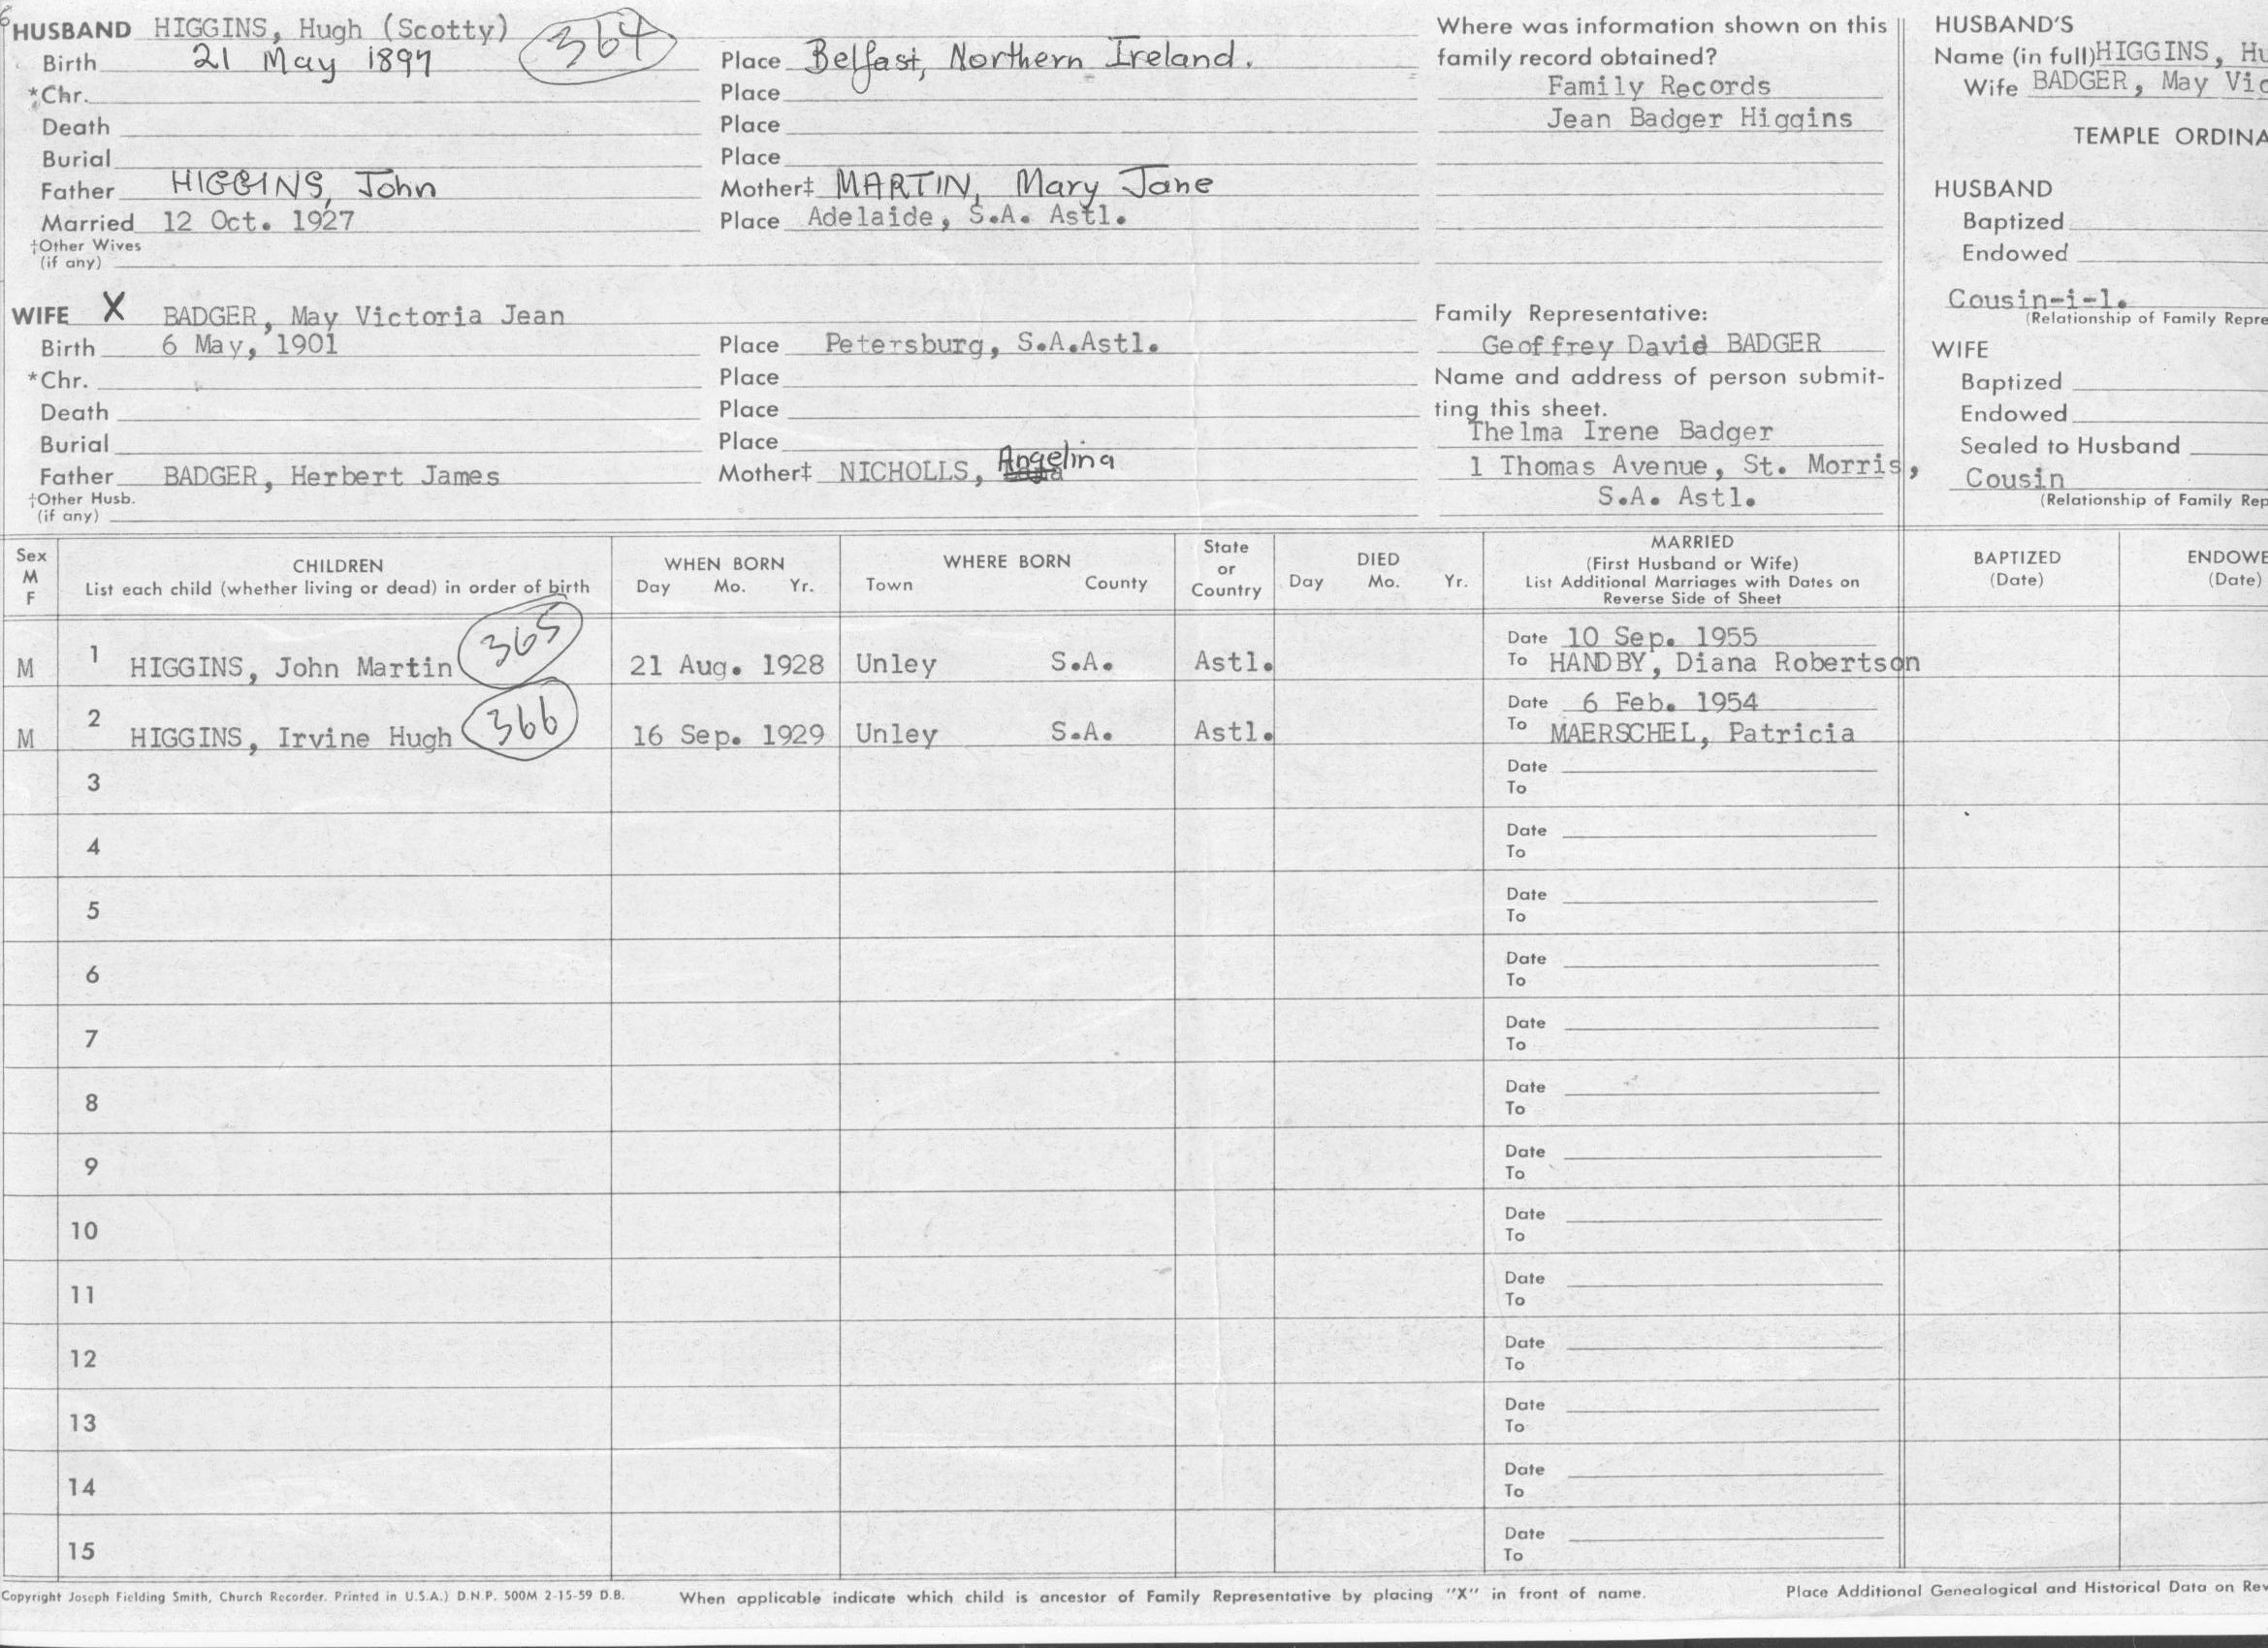 HUSBAND HIGGINS, Hugh (Scotty) 364
Birth 21 May 1897 Place Belfast, Northern Ireland.
*Chr. Place
Death Place
Burial Place
Father HIGGINS, John Mother‡ MARTIN, Mary Jane
Married 12 Oct. 1927 Place Adelaide, S.A. Astl.
†Other Wives
(if any)
WIFE X BADGER, May Victoria Jean
Birth 6 May, 1901 Place Petersburg, S.A.Astl.
*Chr. Place
Death Place
Burial Place
Father BADGER, Herbert James Mother‡ NICHOLLS, Angelina
†Other Husb.
(if any)
Where was information shown on this
family record obtained?
Family Records
Jean Badger Higgins
Family Representative:
Geoffrey David BADGER
Name and address of person submit-
ting this sheet.
Thelma Irene Badger
1 Thomas Avenue, St. Morris,
S.A. Astl.
HUSBAND'S
Name (in full) HIGGINS, Hu
Wife BADGER, May Vic
TEMPLE ORDINA
HUSBAND
Baptized
Endowed
Cousin-i-l.
(Relationship of Family Repre
WIFE
Baptized
Endowed
Sealed to Husband
Cousin
(Relationship of Family Rep
Sex
M
F
CHILDREN
List each child (whether living or dead) in order of birth
WHEN BORN
Day Mo. Yr.
WHERE BORN
Town County
State
or
Country
DIED
Day Mo. Yr.
MARRIED
(First Husband or Wife)
List Additional Marriages with Dates on
Reverse Side of Sheet
BAPTIZED
(Date)
ENDOWE
(Date)
Date 10 Sep. 1955
M 1 HIGGINS, John Martin 365 21 Aug. 1928 Unley S.A. Astl. To HANDBY, Diana Robertson
Date 6 Feb. 1954
M 2 HIGGINS, Irvine Hugh 366 16 Sep. 1929 Unley S.A. Astl. To MAERSCHEL, Patricia
3 Date
To
4 Date
To
5 Date
To
6 Date
To
7 Date
To
8 Date
To
9 Date
To
10 Date
To
11 Date
To
12 Date
To
13 Date
To
14 Date
To
15 Date
To
Copyright Joseph Fielding Smith, Church Recorder. Printed in U.S.A.) D.N.P. 500M 2-15-59 D.B. When applicable indicate which child is ancestor of Family Representative by placing "X" in front of name. Place Additional Genealogical and Historical Data on Rev